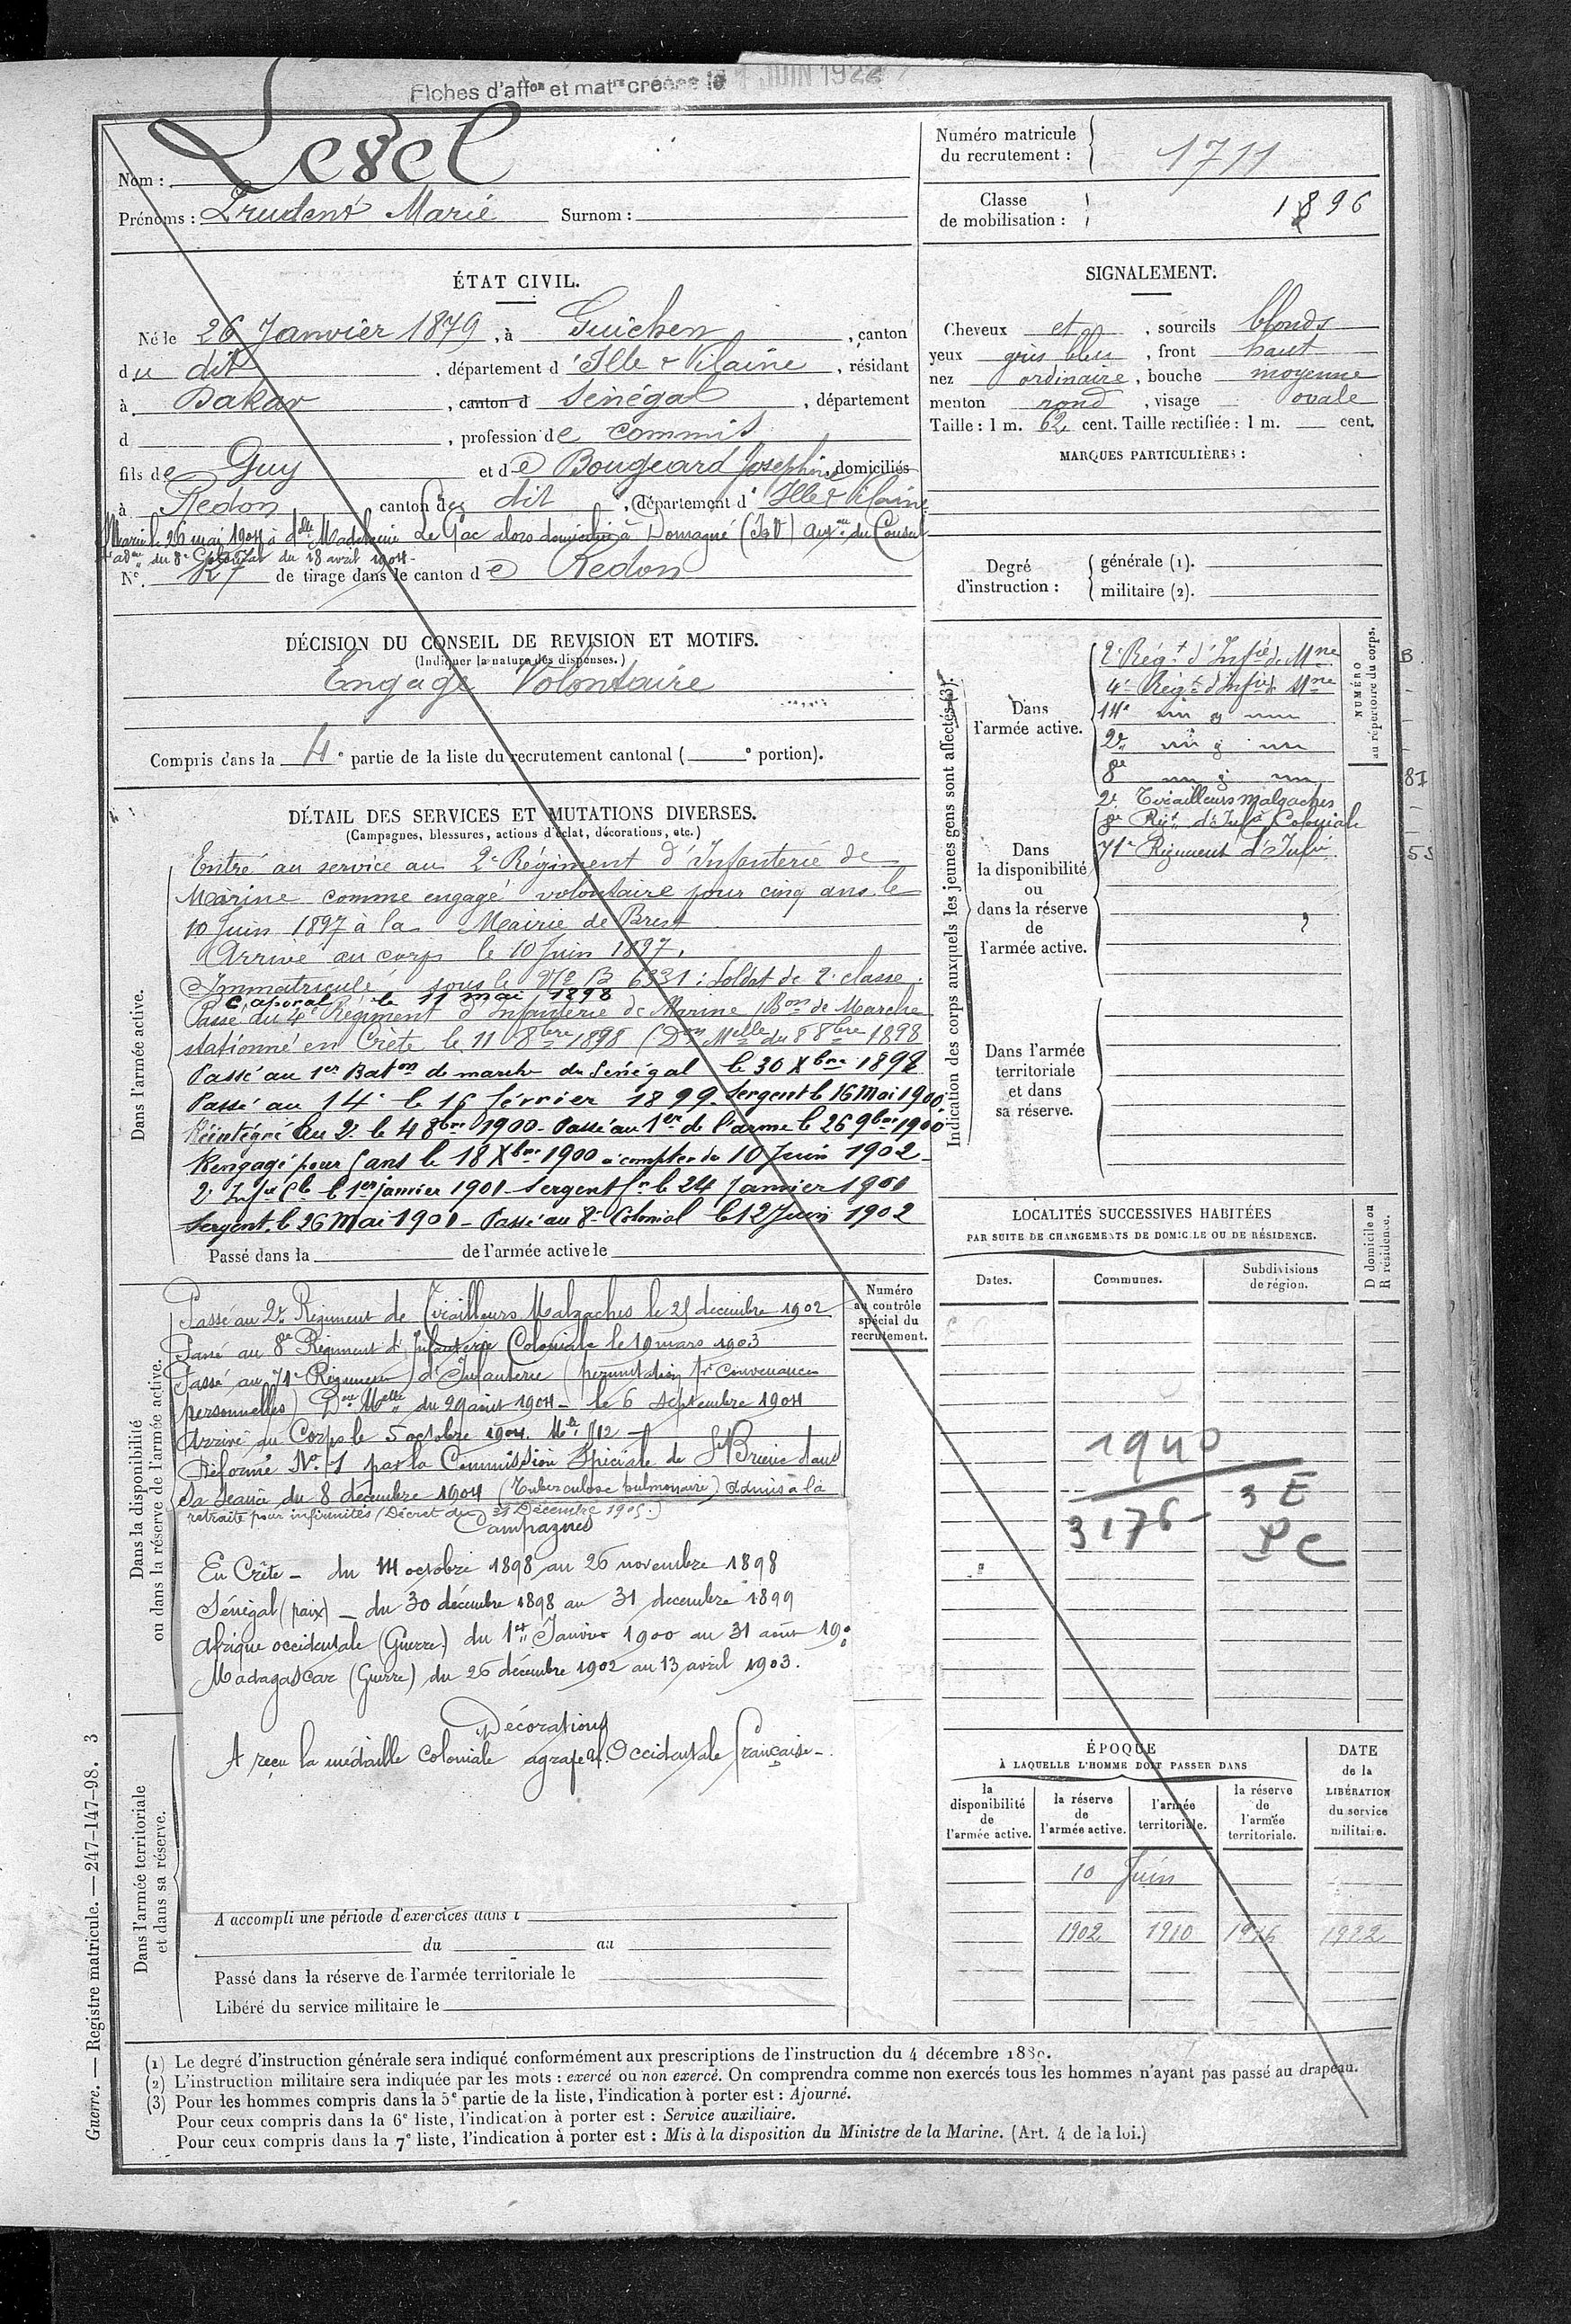 Fiches d'affon et matre créées le 1 JUIN 1922
Nom : Lezel
Prénoms : Prudent Marie Surnom :
Numéro matricule du recrutement : 1711
Classe de mobilisation : 1896
ÉTAT CIVIL.
Né le 26 Janvier 1879, à Guichen, canton
du dit, département d'Ille & Vilaine, résidant
à Dakar, canton d Sénégal, département
d , profession de commis
fils de Guy et de Bougeard Joséphine domiciliés
à Redon canton du dit, département d'Ille & Vilaine
Marié le 26 mai 1904 à Dlle Madeleine Le Gac alors domiciliée à Domagné (I&V) Auton du Conseil
d'adon du 8e Colonial du 18 avril 1904-
No. 127 de tirage dans le canton de Redon
SIGNALEMENT.
Cheveux et , sourcils blonds
yeux gris bleu , front haut
nez ordinaire , bouche moyenne
menton rond , visage ovale
Taille : 1 m. 62 cent. Taille rectifiée : 1 m. cent.
MARQUES PARTICULIÈRES :
Degré d'instruction : générale (1).
militaire (2).
DÉCISION DU CONSEIL DE REVISION ET MOTIFS.
(Indiquer la nature des dispenses.)
Engagé Volontaire
Compris dans la 4e partie de la liste du recrutement cantonal ( e portion).
DÉTAIL DES SERVICES ET MUTATIONS DIVERSES.
(Campagnes, blessures, actions d'éclat, décorations, etc.)
Dans l'armée active.
Entré au service au 2e Régiment d'Infanterie de
Marine comme engagé volontaire pour cinq ans le
10 Juin 1897 à la Mairie de Brest
Arrivé au corps le 10 Juin 1897.
Immatriculé sous le No B 6331 : Soldat de 2e classe.
Caporal le 11 mai 1898
Passé du 4e Régiment d'Infanterie de Marine (Bon de Marche
stationné en Crète le 11 8bre 1898 (Don Melle du 8 8bre 1898
Passé au 1er Baton de marche du Sénégal le 30 Xbre 1898
Passé au 14e le 16 février 1899. Sergent le 16 Mai 1900
Réintégré au 2e le 4 8bre 1900 - Passé au 1er de l'arme le 26 9bre 1900
Rengagé pour 5 ans le 18 Xbre 1900 à compter du 10 Juin 1902 -
2e Infie Cle le 1er janvier 1901 - Sergent fr le 24 Janvier 1901
Sergent. le 26 Mai 1901 - Passé au 8e Colonial le 12 Juin 1902
Passé dans la de l'armée active le
Dans la disponibilité ou dans la réserve de l'armée active.
Passé au 2e Régiment de Tirailleurs Malgaches le 25 décembre 1902
Passé au 8e Régiment d'Infanterie Coloniale le 19 mars 1903
Passé au 71e Régiment d'Infanterie (permutation pr convenances
personnelles) Don Melle du 29 août 1904 - le 6 septembre 1904
Arrivé au Corps le 5 octobre 1904.
Réformé No. 1 par la Commission Spéciale de St Brieuc dans
sa séance du 8 décembre 1904 (Tuberculose pulmonaire) admis à la
retraite pour infirmités (Décret du 31 Décembre 1905.)
Campagnes
En Crète - du 14 octobre 1898 au 26 novembre 1898
Sénégal (paix) - du 30 décembre 1898 au 31 décembre 1899
Afrique occidentale (Guerre) du 1er Janvier 1900 au 31 août 1900
Madagascar (Guerre) du 26 décembre 1902 au 13 avril 1903.
Décorations
A reçu la médaille Coloniale agrafe Af. Occidentale française -
Dans l'armée territoriale et dans sa réserve.
A accompli une période d'exercices dans l
du au
Passé dans la réserve de l'armée territoriale le
Libéré du service militaire le
Numéro au contrôle spécial du recrutement.
Indication des corps auxquels les jeunes gens sont affectés (3).
NUMÉRO au répertoire du corps.
Dans l'armée active.
2e Régt d'Infie de Mne B
4e Régt d'Infie de Mne -
14e -
2e -
8e 81
2e Tirailleurs Malgaches -
8e Rgt d'Infie Coloniale -
71e Régiment d'Infie
Dans la disponibilité ou dans la réserve de l'armée active.
Dans l'armée territoriale et dans sa réserve.
LOCALITÉS SUCCESSIVES HABITÉES
PAR SUITE DE CHANGEMENTS DE DOMICILE OU DE RÉSIDENCE.
Dates. Communes. Subdivisions de région. D domicile ou R résidence.
1940
3176 3 E
PC
ÉPOQUE
À LAQUELLE L'HOMME DOIT PASSER DANS
la disponibilité de l'armée active. la réserve de l'armée active. l'armée territoriale. la réserve de l'armée territoriale. DATE de la LIBÉRATION du service militaire.
10 Juin
1902 1910 1916 1922
(1) Le degré d'instruction générale sera indiqué conformément aux prescriptions de l'instruction du 4 décembre 1889.
(2) L'instruction militaire sera indiquée par les mots : exercé ou non exercé. On comprendra comme non exercés tous les hommes n'ayant pas passé au drapeau.
(3) Pour les hommes compris dans la 5e partie de la liste, l'indication à porter est : Ajourné.
Pour ceux compris dans la 6e liste, l'indication à porter est : Service auxiliaire.
Pour ceux compris dans la 7e liste, l'indication à porter est : Mis à la disposition du Ministre de la Marine. (Art. 4 de la loi.)
Guerre. — Registre matricule. — 247-147-98. 3